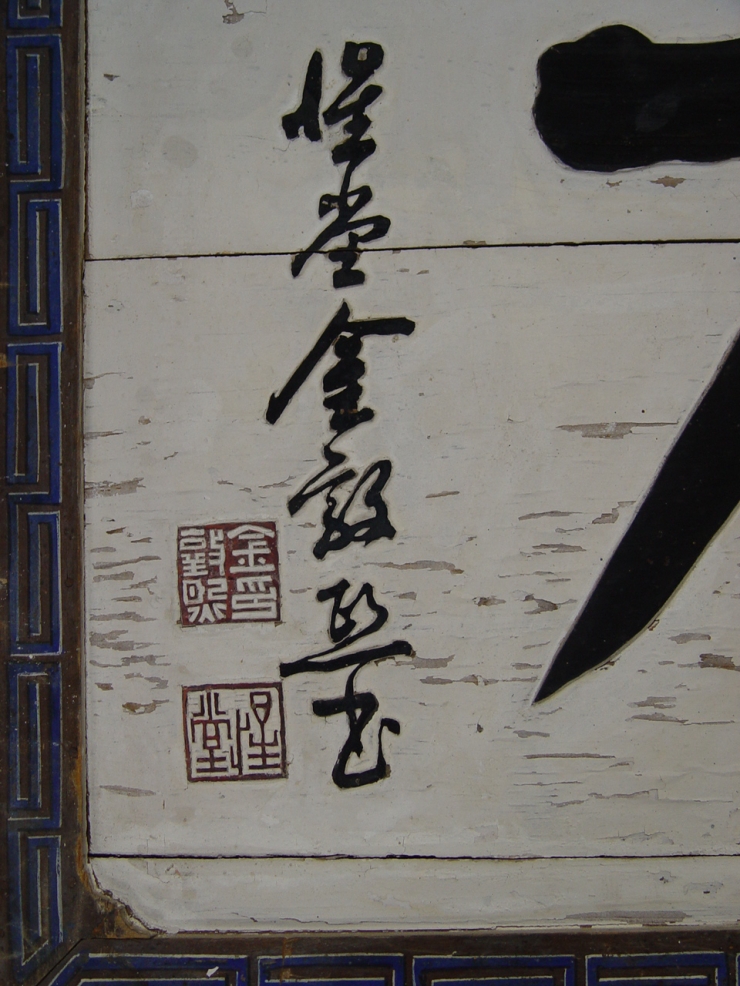 惺堂金敦熙書
金印敦熙
惺堂